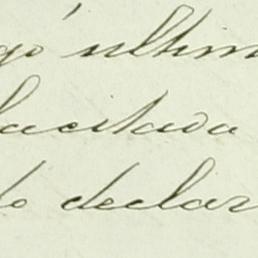 go ultim
lacitava
do declar